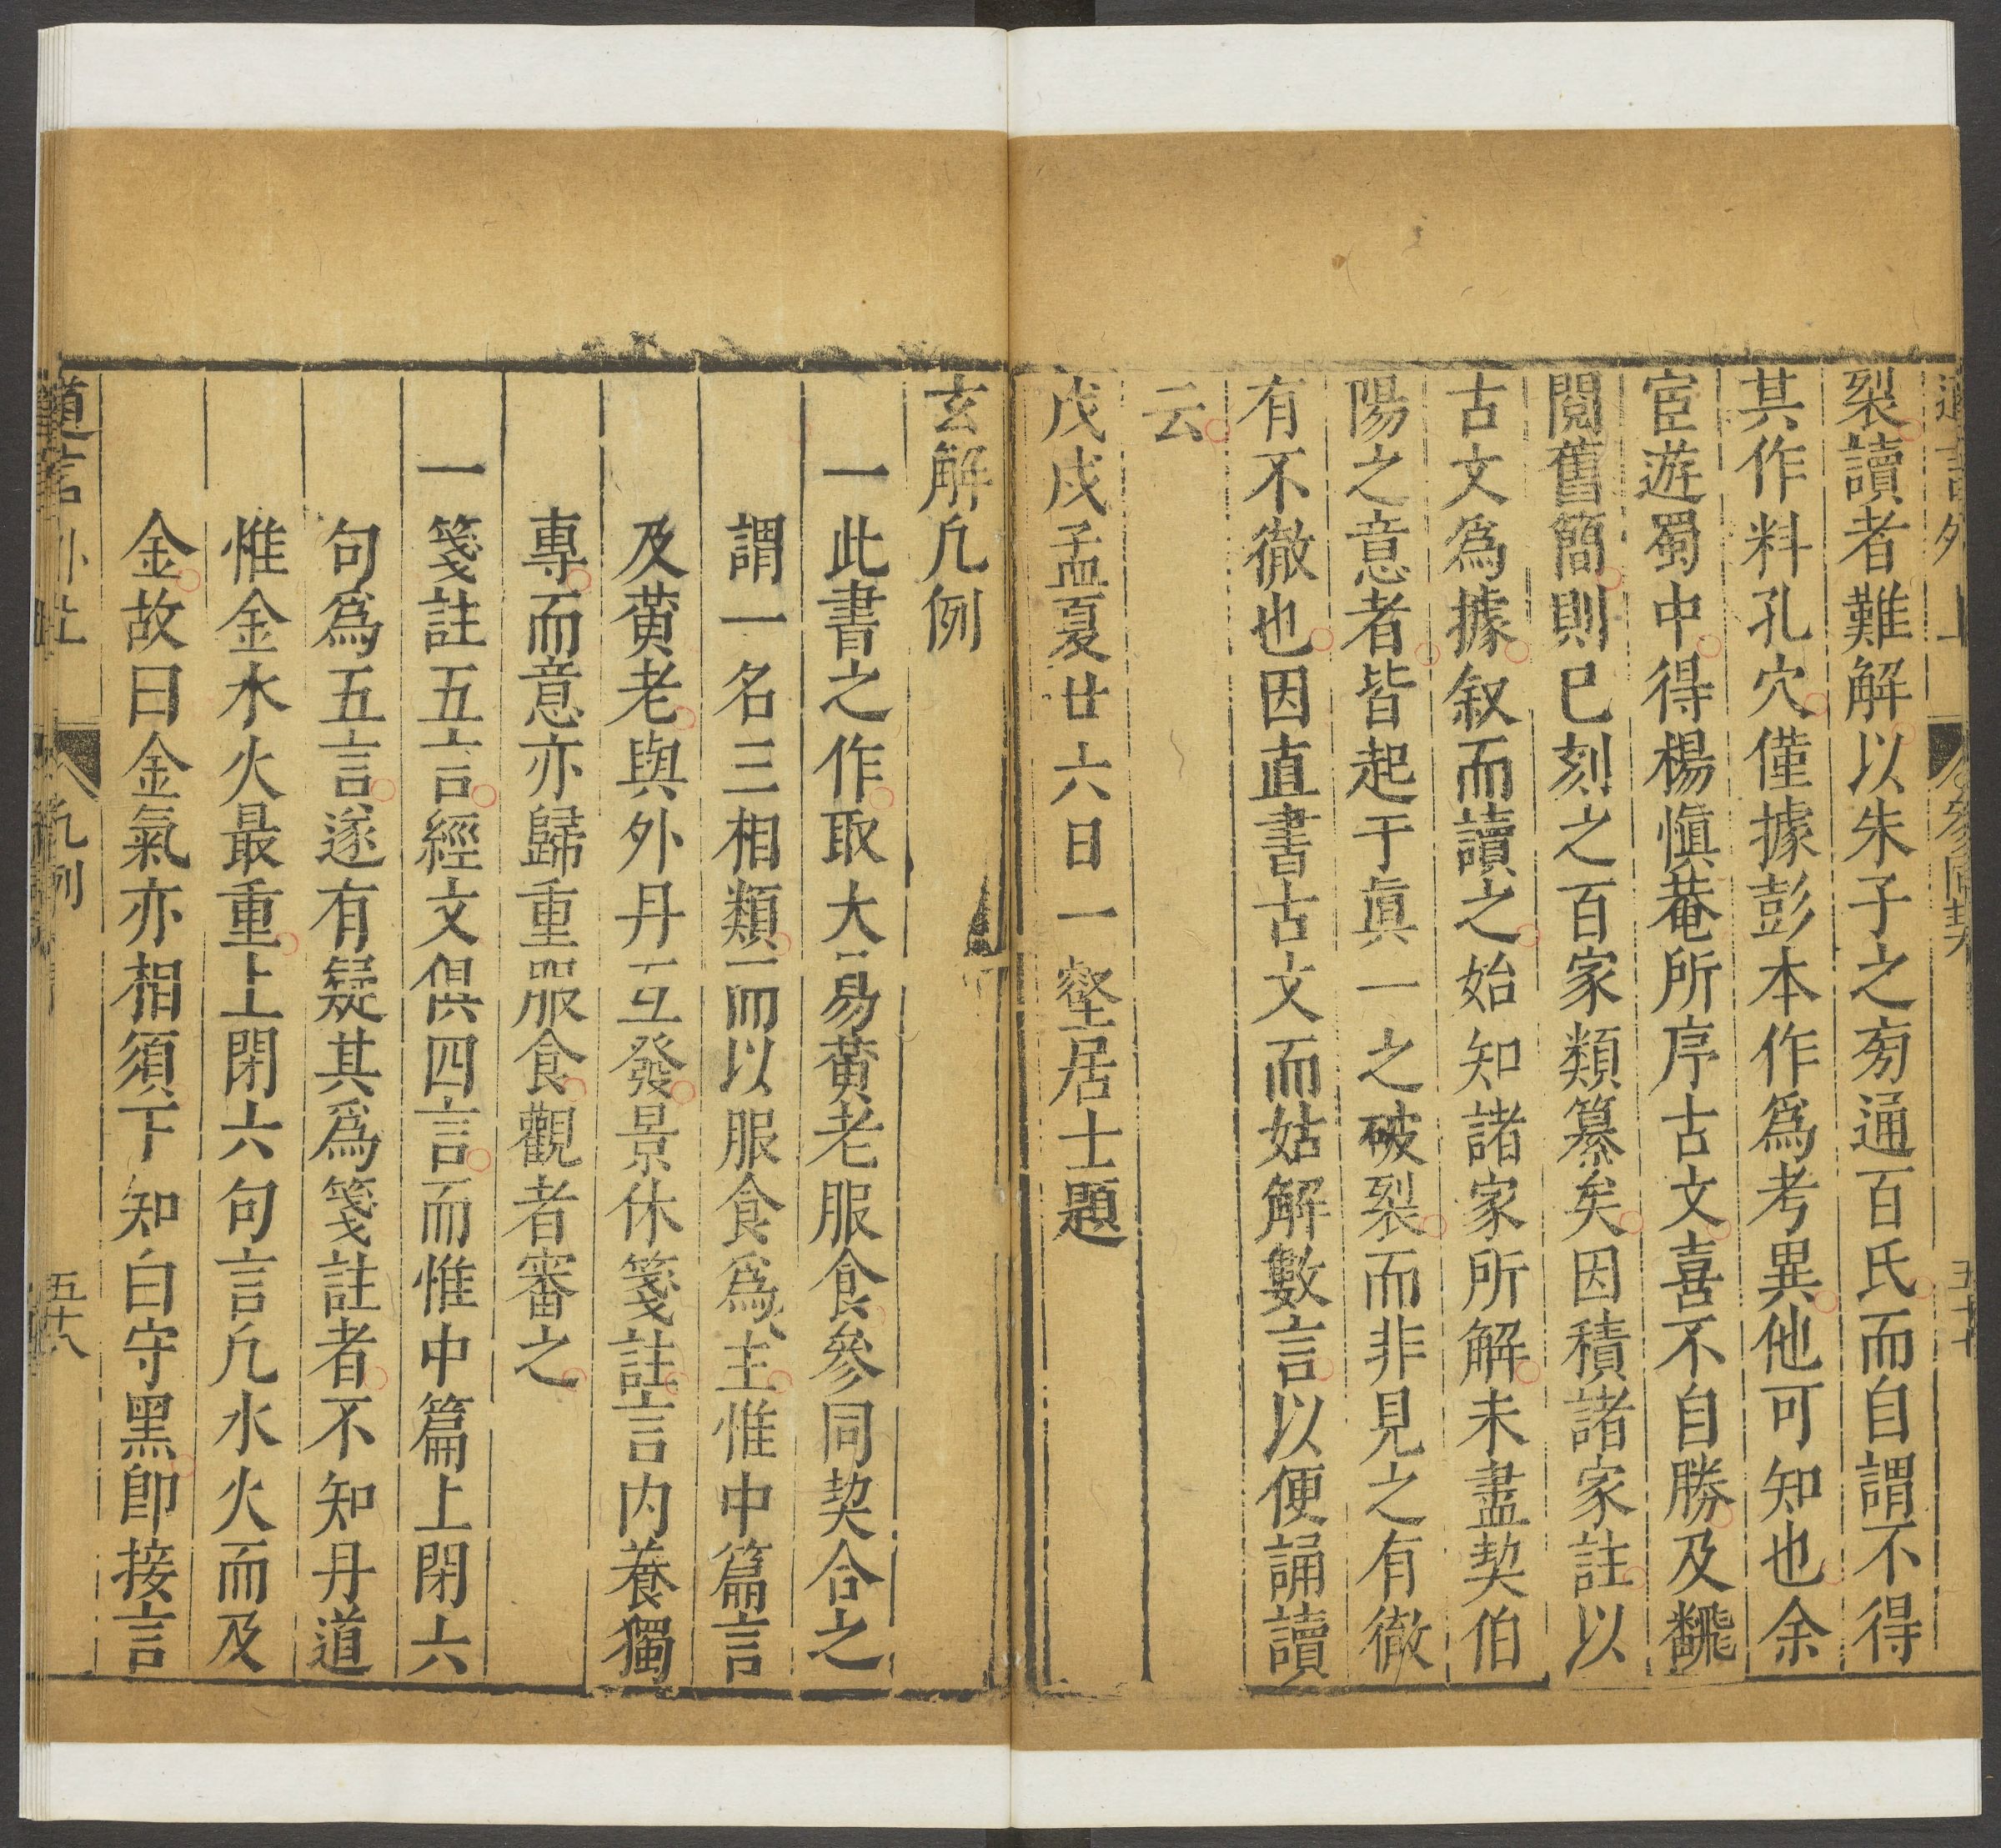 裂讀者難解以朱子之旁通百氏而自謂不得
其作料孔穴僅據彭本作爲考異他可知也余
宦遊蜀中得楊愼菴所序古文喜不自勝及飜
閱舊簡則已刻之百家類纂矣因積諸家註以
古文爲據叙而讀之始知諸家所解未盡契伯
陽之意者皆起于眞一之破裂而非見之有徹
有不徹也因直書古文而姑解數言以便誦讀
云
戊戌孟夏廿六日一壑居士題
玄解凢例
一此書之作取大易黄老服食參同契合之
謂一名三相類而以服食爲主惟中篇言
及黄老與外丹互發景休箋註言内養獨
專而意亦歸重服食觀者審之
一箋註五言經文俱四言而惟中篇上閉六
句爲五言遂有疑其爲箋註者不知丹道
惟金水火最重上閉六句言凢水火而及
金故曰金氣亦相須下知白守黑卽接言
道言外 上
凢例
五十八